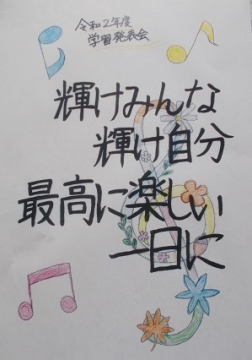 令和2年度
学習発表会
輝けみんな
輝け自分
最高に楽しい
一日に